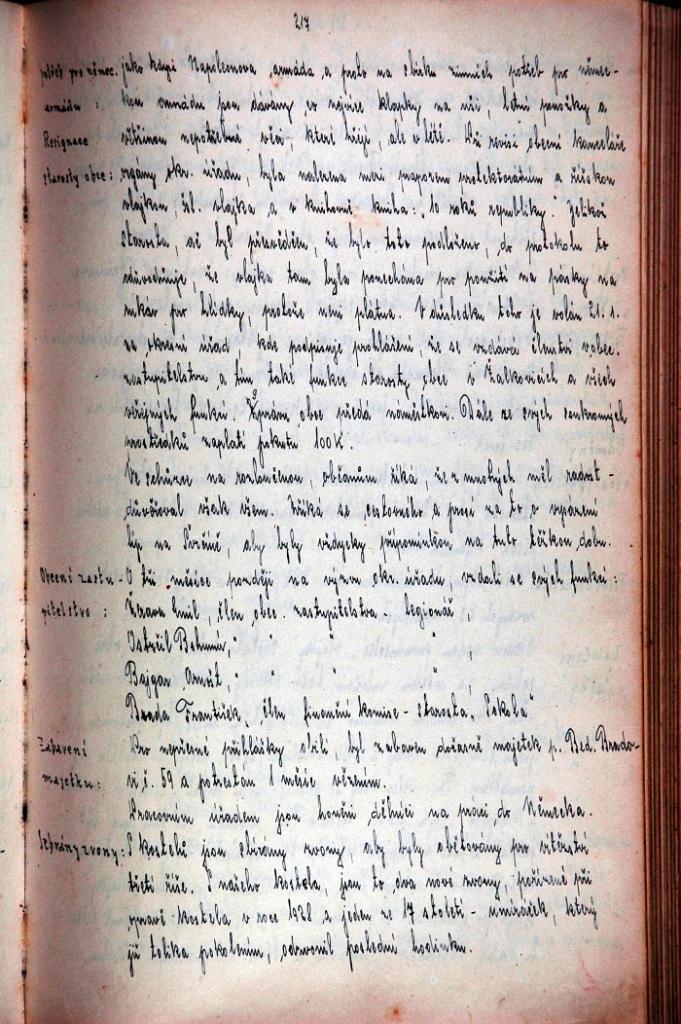 217
potřeb pro němec. jako kdysi Napoleonova armáda, a proto na sbírku zimních potřeb pro němec-
armádu : kou armádu jsou dávány co nejvíce klapky na uši, letní ponožky a
Resignace většinou nepotřebné věci, které hřejí, ale v létě. Při revisi obecní kanceláře
starosty obce: orgány okr. úřadu, byla nalezena mezi praporem protektorátním a říšskou
vlajkou, čsl. vlajka a v knihovně kniha: "10 roků republiky." Jelikož
starosta, ač byl přesvědčen, že bylo toto podloženo, do protokolu to
odůvodňuje, že vlajka tam byla ponechána pro použití na pásky na
rukáv pro hlídky, protože není plátna. V důsledku toho je volán 21. 1.
na okresní úřad, kde podpisuje prohlášení, že se vzdává členství v obec.
zastupitelstvu a tím také funkce starosty obce v Žalkovicích a všech
veřejných funkcí. Správu obce předá náměstkovi. Dále ze svých soukromých
prostředků zaplatí pokutu 100 K.
Ve schůzce na rozloučenou, občanům říká, že z mnohých měl radost -
důvěřoval však všem. Zříká se cestovného a prosí za to o vysázení
lip na , aby byly vždycky připomínkou na tuto těžkou dobu.
Obecní zastu- O tři měsíce později na výzvu okr. úřadu, vzdali se svých funkcí:
pitelstvo : Zdráva Emil, člen obec. zastupitelstva - legionář,
Ostrčil Bohumír, " " " "
Bajgar Arnošt, " " " "
Brada František, člen finanční komise - starosta "Sokola"
Zabavení Pro nepřesné přihlášky obilí, byl zabaven dočasně majetek p. Bed. Brado-
majetku: vi č. 59 a potrestán 1 měsíc vězením.
Pracovním úřadem jsou honěni dělníci na práci do Německa.
Sebrány zvony: S kostelů jsou sbírány zvony, aby byly obětovány pro vítězství
třetí říše. S našeho kostela, jsou to dva nové zvony, pořízené při
opravě kostela v roce 1928 a jeden ze 17 století - umíráček, který
již tolika pokolením, odzvonil poslední hodinku.